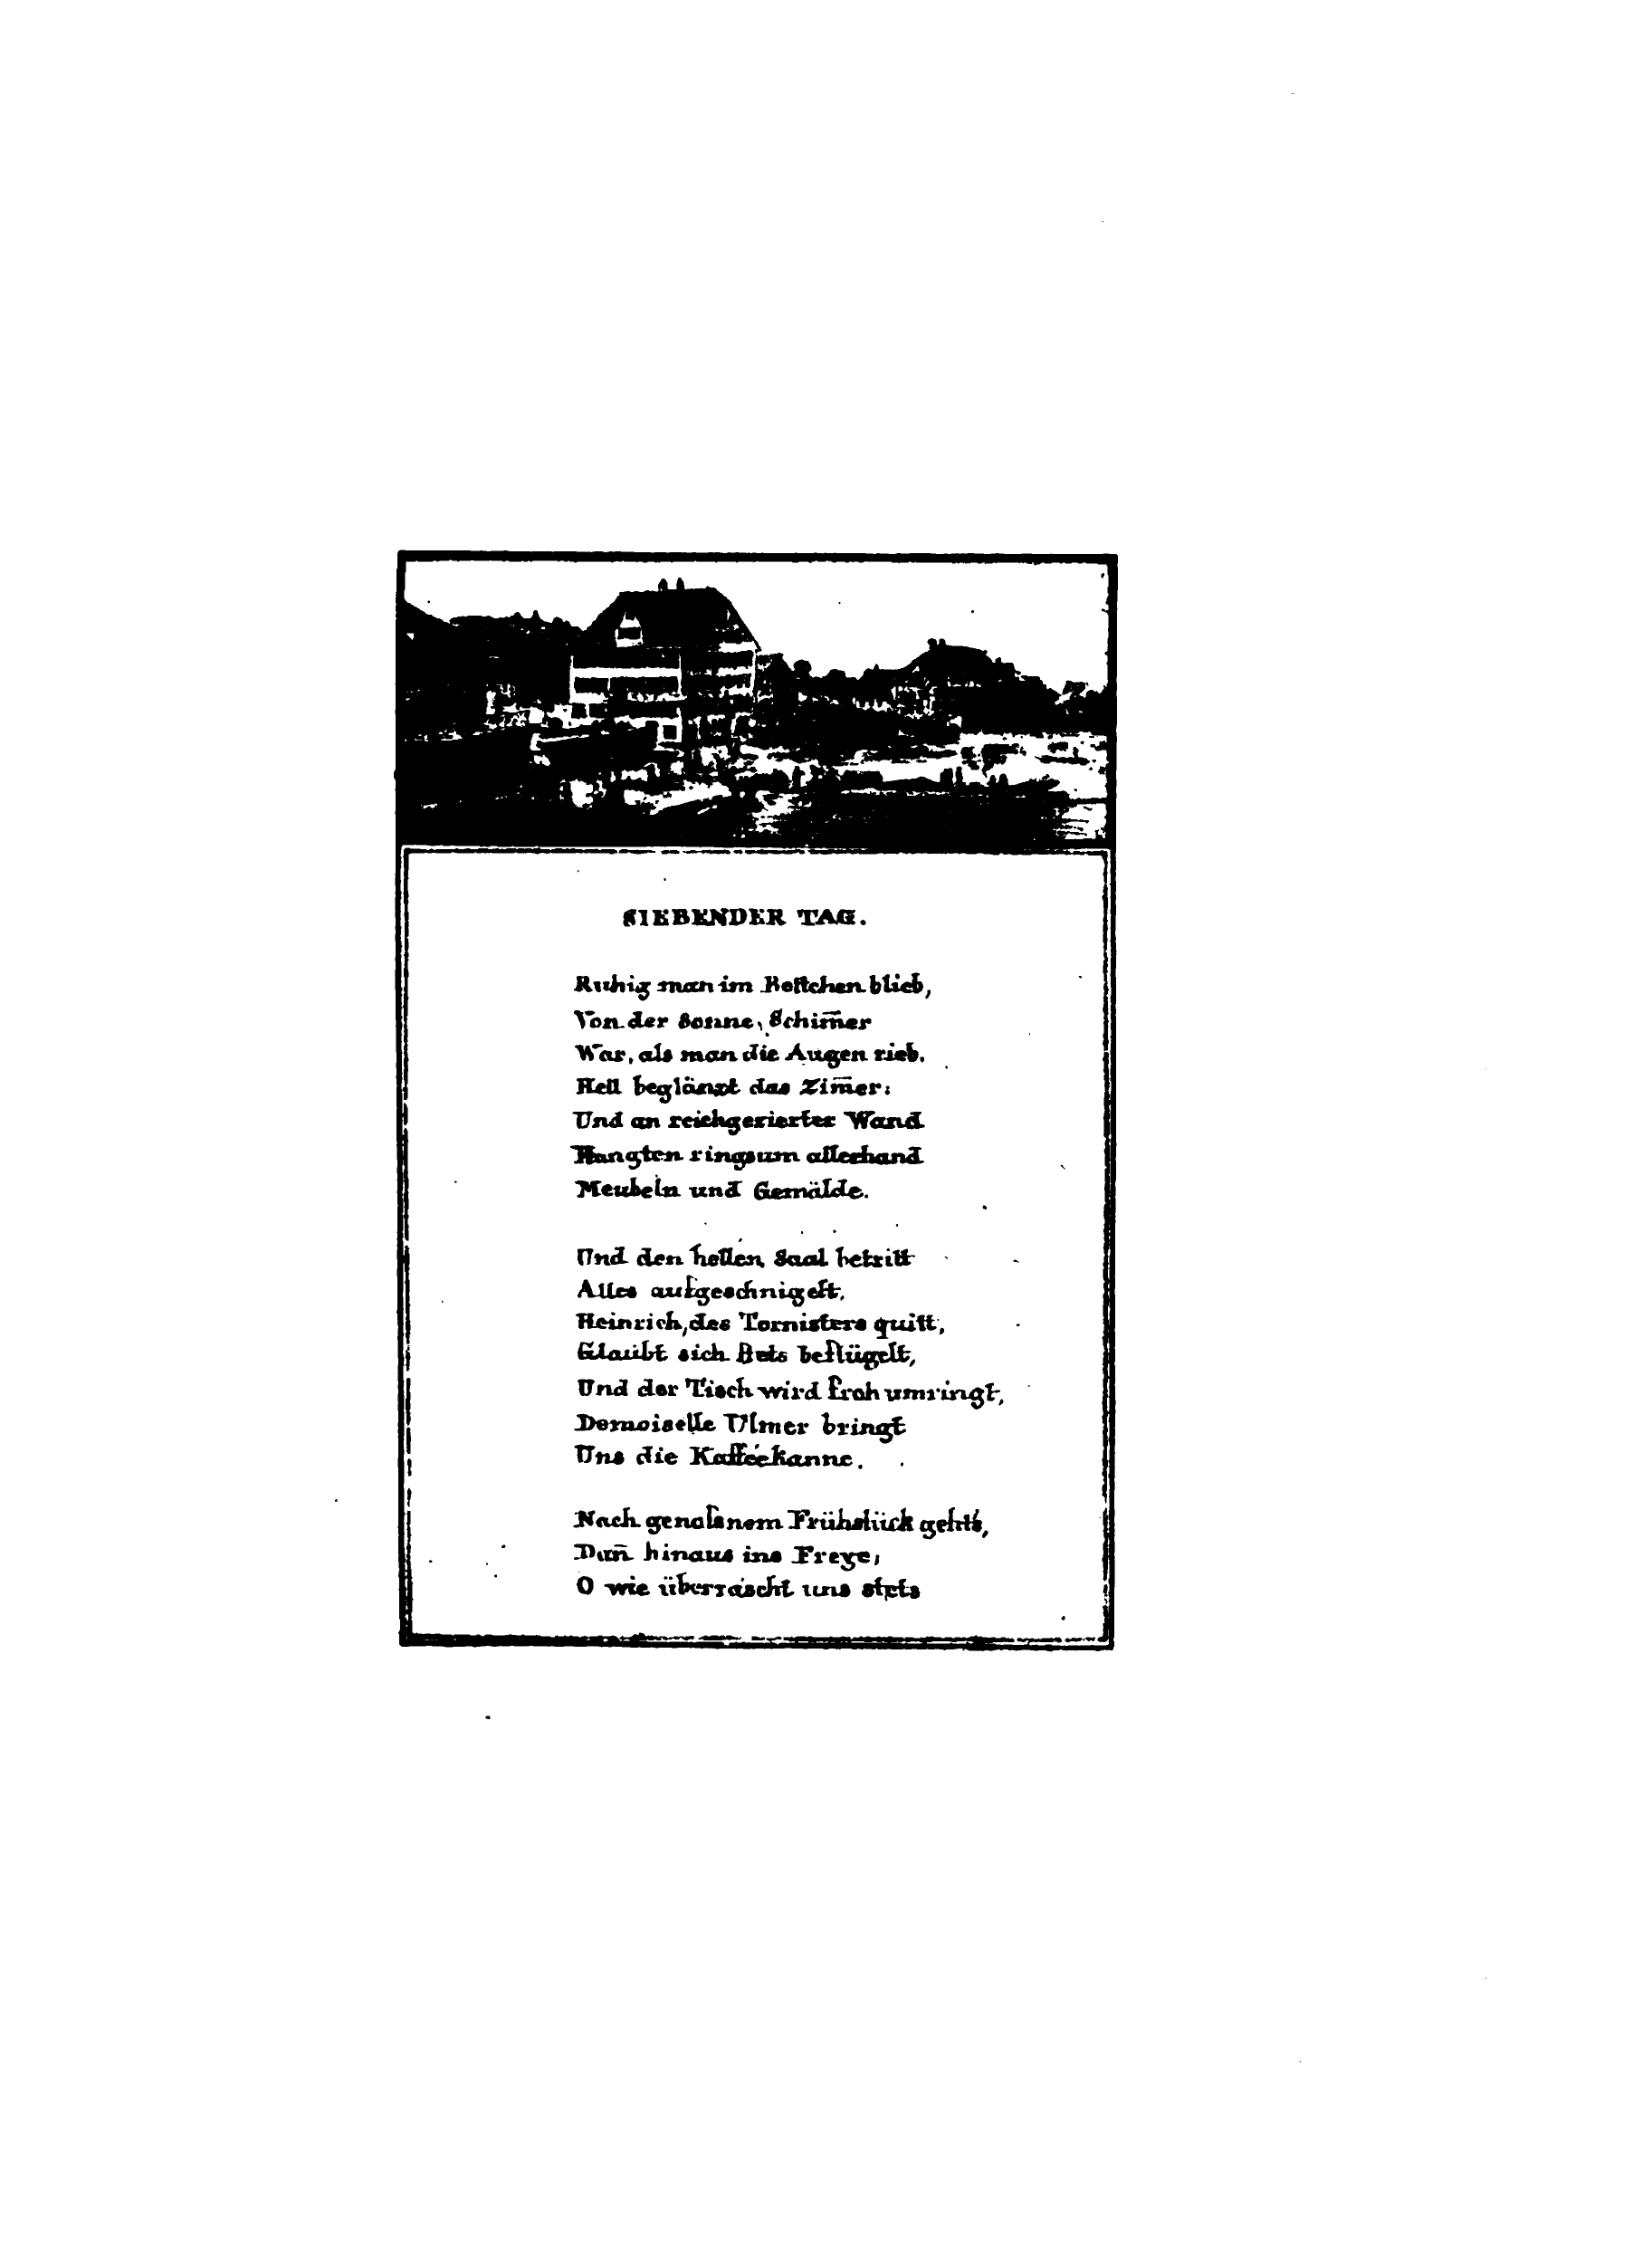 SIEBENDER TAG.
Ruhig man im Bettchen blieb,
Von der Sonne, Schim̄er
War, als man die Augen rieb,
Hell beglänzt das Zim̄er:
Und an reichgezierter Wand
Hangten ringsum allerhand
Meubeln und Gemälde.
Und den hellen Saal betritt
Alles aufgeschnigelt,
Heinrich, des Tornisters quitt,
Glaubt sich beflügelt,
Und der Tisch wird froh umringt,
Demoiselle Ulmer bringt
Uns die Kafféekanne.
Nach genoßnem Frühstück gehts,
Dan̄ hinaus ins Freye;
O wie überrascht uns stets